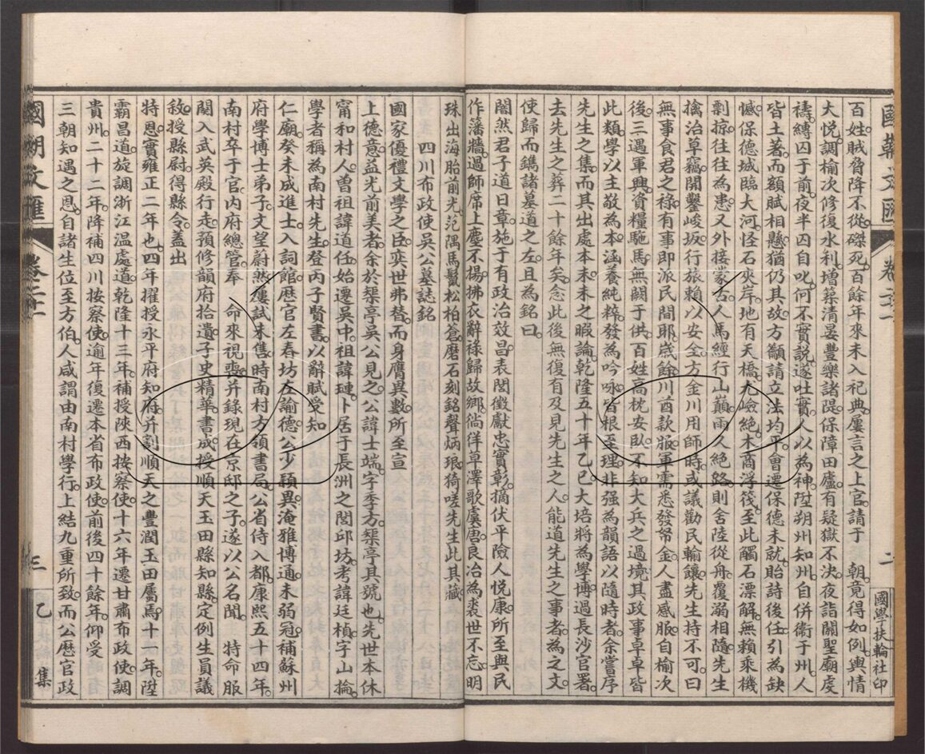 國朝文匯 卷二 二 國學扶輪社印
百姓賊脅降不從磔死百餘年來未入祀典屢言之上官請于 朝竟得如例輿情
大悅調榆次修復水利增築清晏豐樂諸隄保障田廬有疑獄不決夜詣關聖廟虔
禱縛囚于前夜半囚自叱何不實說遂吐實人以為神陞朔州知州自併衛于州人
皆土著而額賦相懸猶仍其故方顧請立法均平會遷保德未就貽詩後任引為缺
憾保德城臨大河怪石夾岸地有天橋尤嶮絕木商浮筏至此觸石漂解無賴乘機
剽掠往往為患又外接蒙古人馬經行山巔雨久絕路則舍陸從舟覆溺相隨先生
擒治草竊開鑿峻坂行旅賴以安全方金川用師時或議勸民輸鑲先生持不可曰
無事食君之祿有事即派民間耶歲餘川酋款服軍需悉發帑金人盡感服自榆次
後三遇軍興資糧驰馬無闕于供百姓高枕安臥不知大兵之過境其政事卓卓皆
此類學以主敬為本涵養純粹發為吟咏皆根至理非强為韻語以隨時者余嘗序
先生之集而其出處本末未之暇論乾隆五十年乙巳大培將為學博過長沙官署
去先生之葬二十餘年矣念此後無復有及見先生之人能道先生之事者為之文
使歸而鐫諸墓道之左且為銘曰
闇然君子道日章施于有政治效昌表閭徵獻忠實彰摘伏平險人悅康所至與民
作藩牆過師席上塵不揚拂衣辭祿歸故鄉徜徉草澤歌虞唐良冶為裘世不忘明
珠出海胎前光范隅馬鬛松柏蒼磨石刻銘聲炳琅猗嗟先生此其藏
四川布政使吳公墓誌銘
國家優禮文學之臣奕世弗替而身膺異數所至宣
上德意益光前美者余於槩亭吳公見之公諱士端字季方槩亭其號也先世本休
甯和村人曾祖諱道任始遷吳中祖諱璉卜居于長洲之閶邱坊考諱廷楨字山掄
學者稱為南村先生登丙子賢書以辭賦受知
仁廟癸未成進士入詞館歷官左春坊左諭德公少穎異淹雅博通未弱冠補蘇州
府學博士弟子文望蔚然屢試未售時南村方領書局公省侍入都康熙五十四年
南村卒于官內府總管奉 命來視喪并錄現在京邸之子遂以公名聞 特命服
闋入武英殿行走預修韻府拾遺子史精華書成授順天玉田縣知縣定例生員議
敘授縣尉得縣令蓋出
特恩實雍正二年也四年擢授永平府知府并割順天之豐潤玉田屬焉十一年陞
霸昌道旋調浙江溫處道乾隆十三年補授陝西按察使十六年遷甘肅布政使調
貴州二十二年降補四川按察使逾年復遷本省布政使前後四十餘年仰受
三朝知遇之恩自諸生位至方伯人咸謂由南村學行上結九重所致而公歷官政
國朝文匯 卷二十二 三 乙集